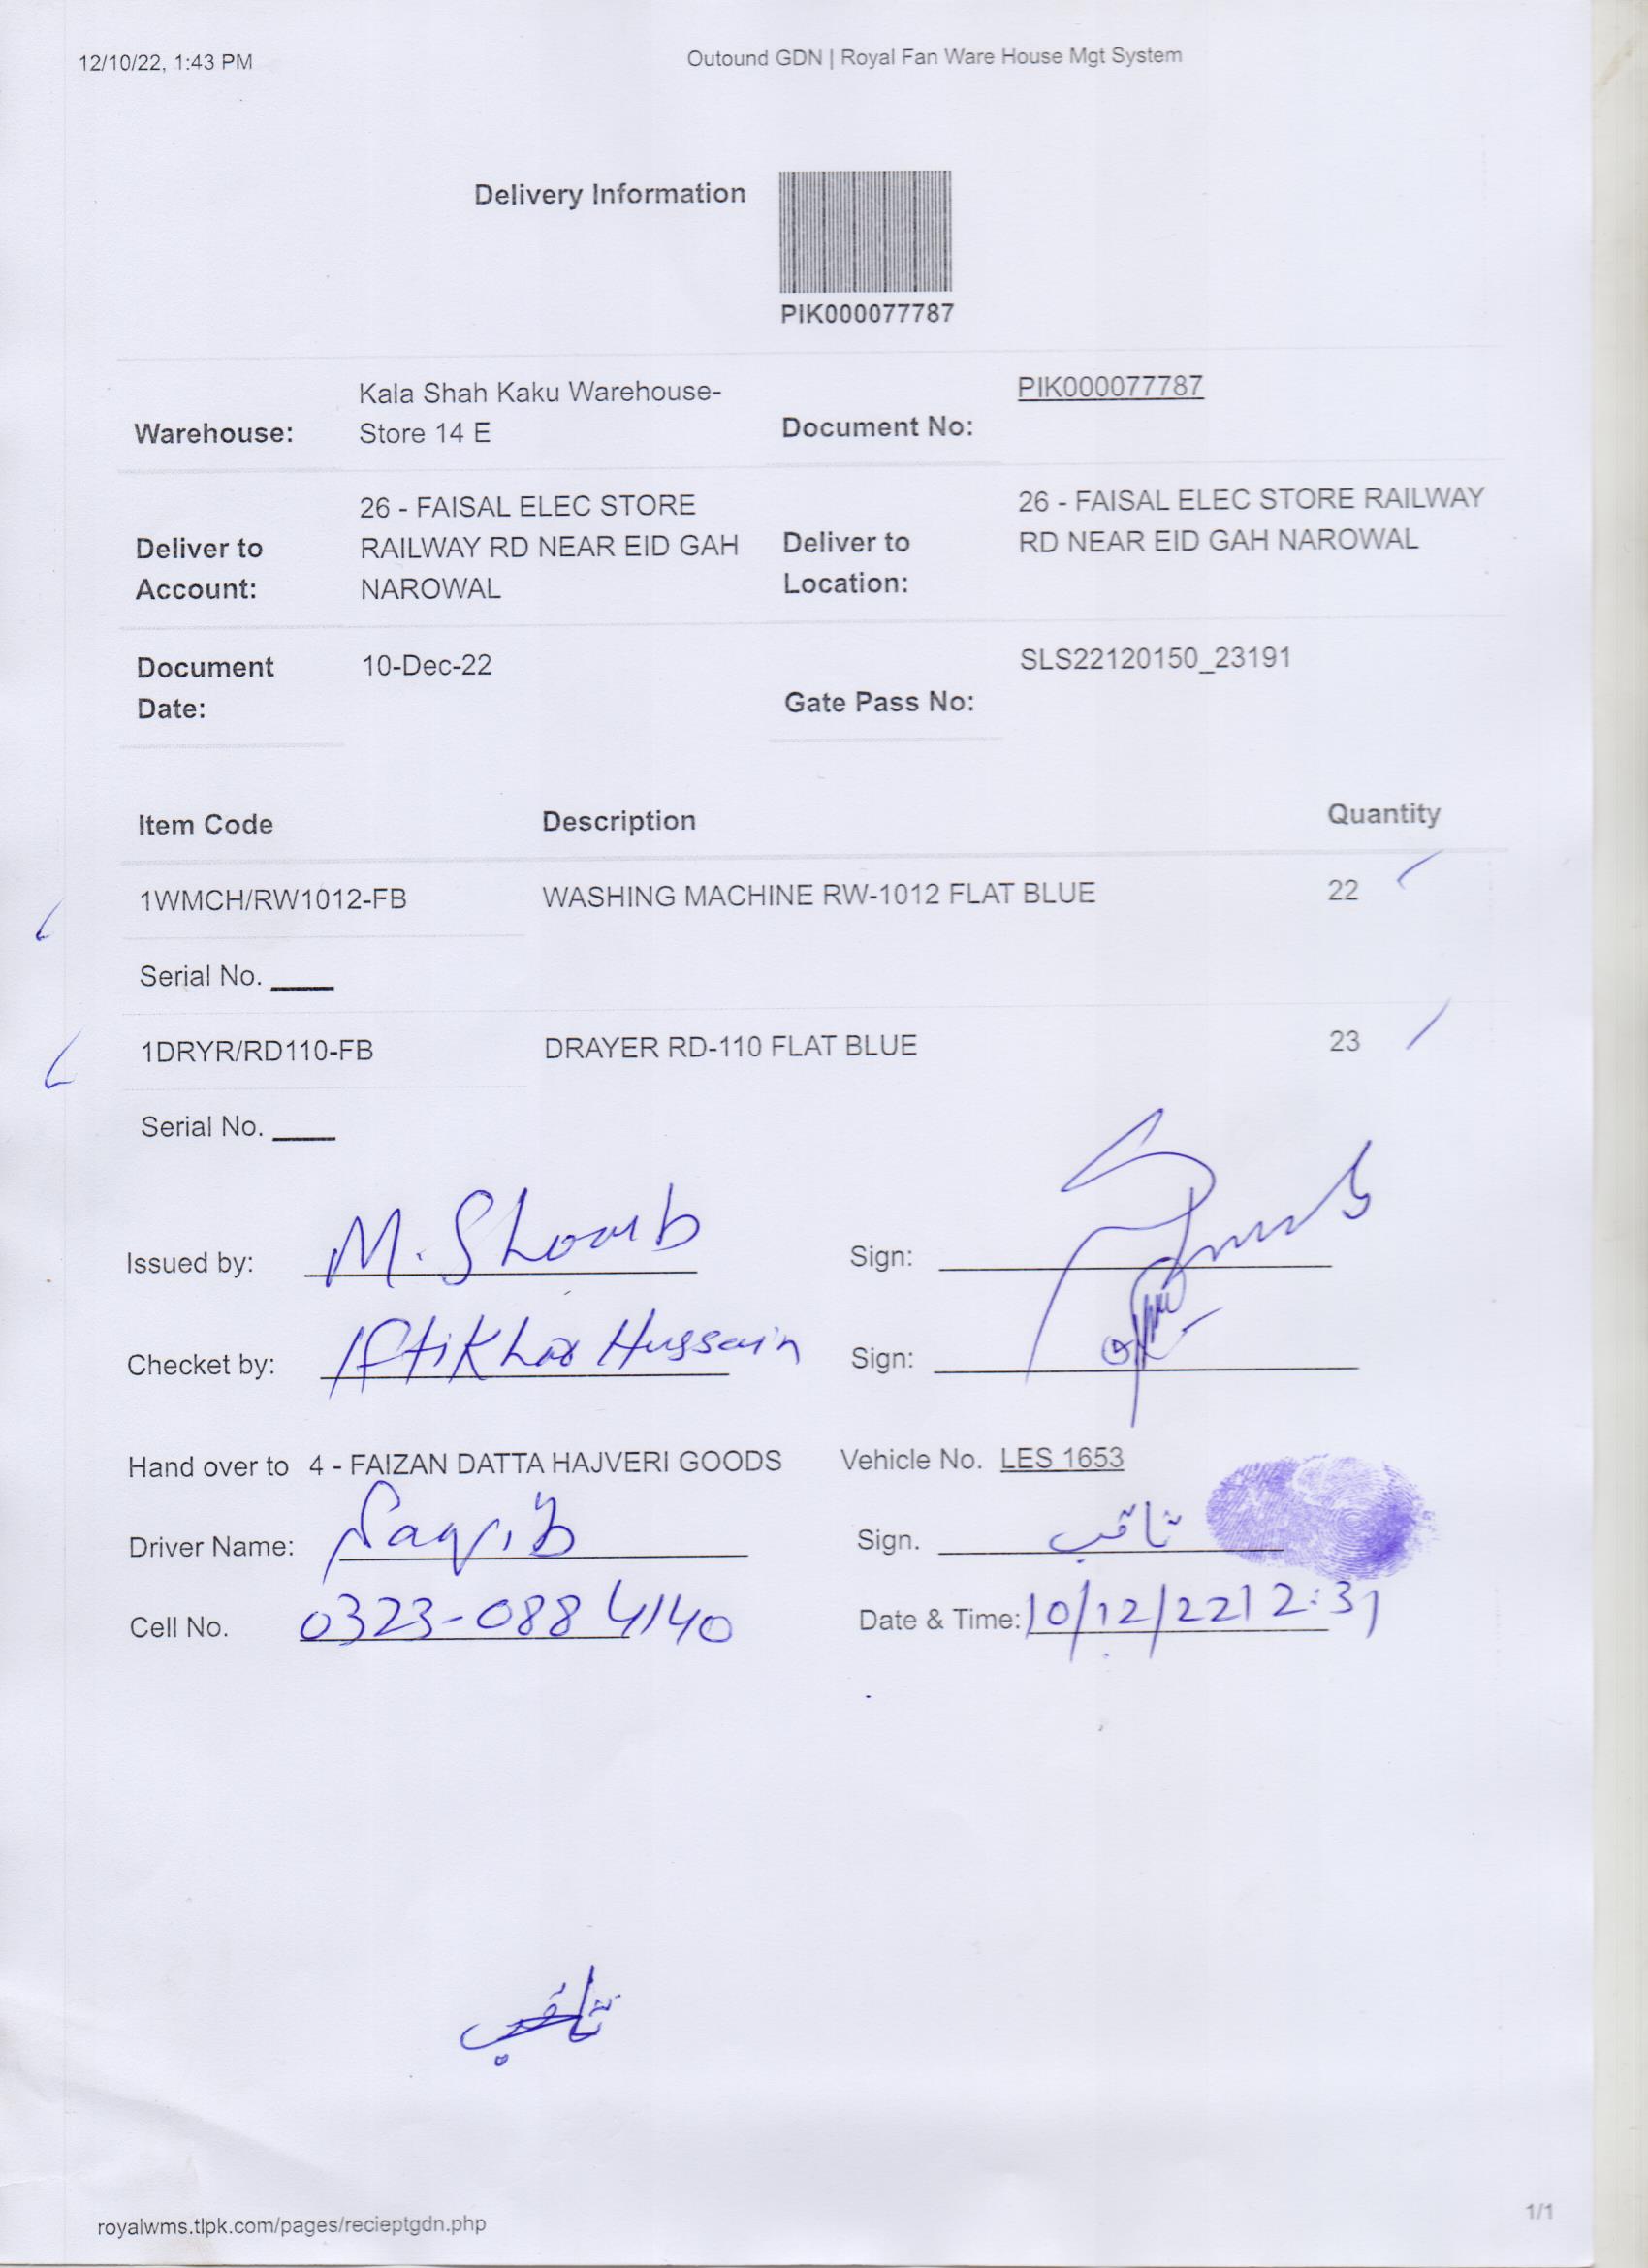 12/10/22, 1:43 PM
Outound GDN | Royal Fan Ware House Mgt System
Delivery Information
PIK000077787
Warehouse: Kala Shah Kaku Warehouse-
Store 14 E
Document No: PIK000077787
Deliver to
Account:
26 - FAISAL ELEC STORE
RAILWAY RD NEAR EID GAH
NAROWAL
Deliver to
Location:
26 - FAISAL ELEC STORE RAILWAY
RD NEAR EID GAH NAROWAL
Document
Date:
10-Dec-22
Gate Pass No: SLS22120150_23191
Item Code Description Quantity
1WMCH/RW1012-FB WASHING MACHINE RW-1012 FLAT BLUE 22
Serial No.
1DRYR/RD110-FB DRAYER RD-110 FLAT BLUE 23
Serial No.
Issued by: M. Shoaib Sign:
Checket by: Iftikhar Hussain Sign:
Hand over to 4 - FAIZAN DATTA HAJVERI GOODS Vehicle No. LES 1653
Driver Name: Saqib Sign. ثاقب
Cell No. 0323-0884140 Date & Time: 10/12/22 2:31
ثاقب
royalwms.tlpk.com/pages/recieptgdn.php
1/1